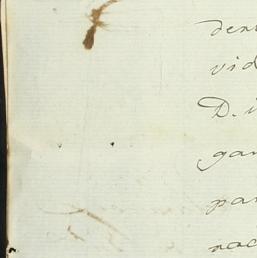 den
vid
D. i
gan
par
nac